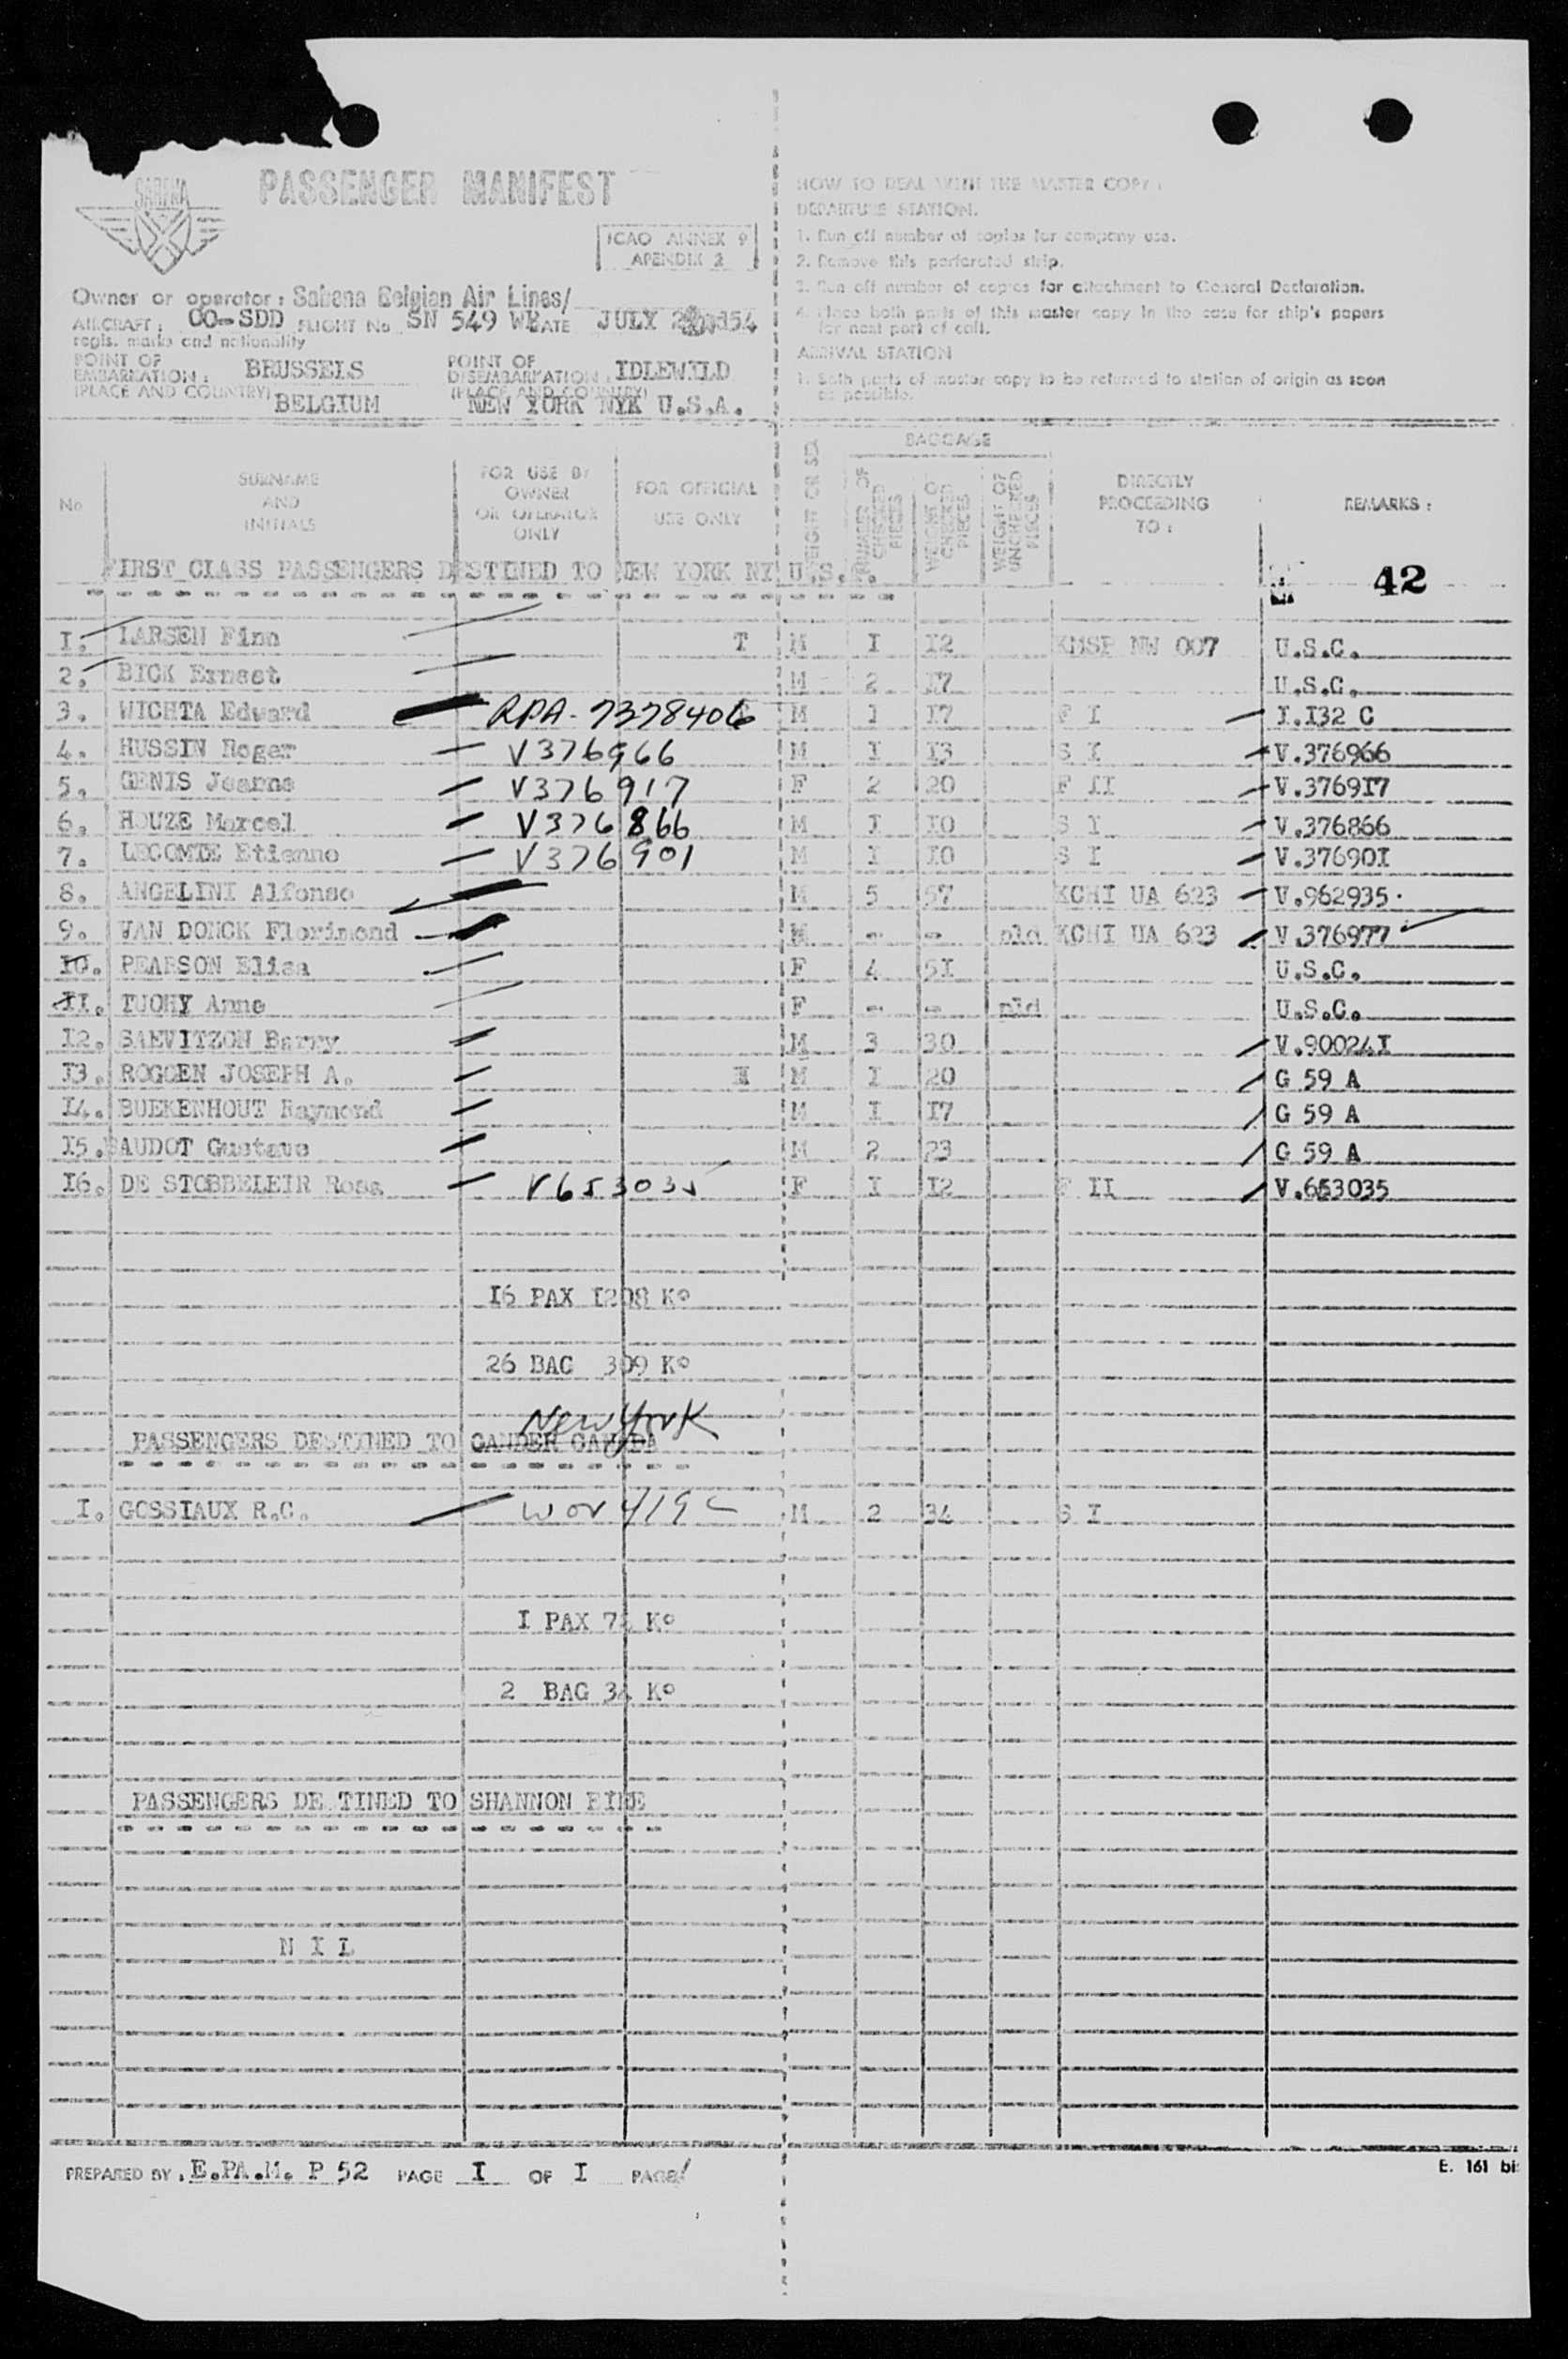 SABENA
PASSENGER MANIFEST
ICAO ANNEX 9
APENDIX 2
Owner or operator : Sabena Belgian Air Lines/
AIRCRAFT : OO-SDD FLIGHT No SN 549 DATE JULY 54
regis. marks and nationality
POINT OF EMBARKATION : BRUSSELS POINT OF DISEMBARKATION : IDLEWILD
(PLACE AND COUNTRY) BELGIUM (PLACE AND COUNTRY) NEW YORK NYK U.S.A.
HOW TO DEAL WITH THE MASTER COPY :
DEPARTURE STATION.
1. Run off number of copies for company use.
2. Remove this perforated strip.
3. Run off number of copies for attachment to General Declaration.
4. Place both parts of this master copy in the case for ship's papers
for next port of call.
ARRIVAL STATION
1. Both parts of master copy to be returned to station of origin as soon
as possible.
No
SURNAME AND INITIALS
FOR USE BY OWNER OR OPERATOR ONLY
FOR OFFICIAL USE ONLY
WEIGHT OR SEX
BAGGAGE
NUMBER OF CHECKED PIECES
WEIGHT OF CHECKED PIECES
WEIGHT OF UNCHECKED PIECES
DIRECTLY PROCEEDING TO :
REMARKS :
FIRST CLASS PASSENGERS DESTINED TO NEW YORK NY U.S. .
42
I. LARSEN Finn T M I I2 KMSP NW 007 U.S.C.
2. BICK Ernest M 2 I7 U.S.C.
3. WICHTA Edward RPA-7378406 M I I7 F I I.I32 C
4. HUSSIN Roger V376966 M I I3 S I V.376966
5. GENIS Jeanne V376917 F 2 20 F II V.3769I7
6. HOUZE Marcel V376866 M I I0 S I V.376866
7. LECOMTE Etienne V376901 M I I0 S I V.37690I
8. ANGELINI Alfonso M 5 57 KCHI UA 623 V.962935.
9. VAN DONCK Florimond M - - pld KCHI UA 623 V.376977
I0. PEARSON Elisa F 4 5I U.S.C.
II. TUOHY Anne F - - pld U.S.C.
I2. SAEVITZON Barry M 3 30 V.90024I
I3. ROGGEN JOSEPH A. M I 20 G 59 A
I4. BUEKENHOUT Raymond M I I7 G 59 A
I5. BAUDOT Gustave M 2 23 G 59 A
I6. DE STOBBELEIR Rosa V653035 F I I2 F II V.653035
I6 PAX I208 K°
26 BAG 309 K°
New York
PASSENGERS DESTINED TO GANDER CANADA
I. GOSSIAUX R.C. M 2 34 S I
I PAX K°
2 BAG 34 K°
PASSENGERS DE TINED TO SHANNON EIRE
N I L
PREPARED BY : E.PA.M. P 52 PAGE I OF I PAGE/
E. 161 bis